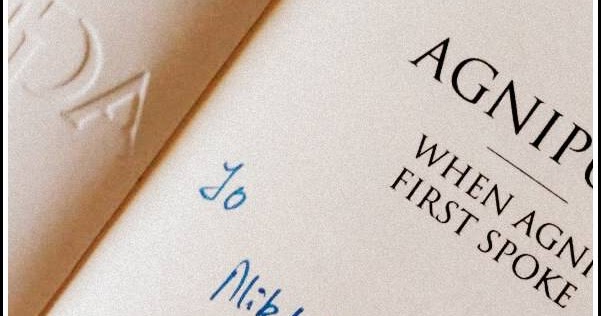 DA
AGNIP
WHEN AGNI
FIRST SPOKE
To